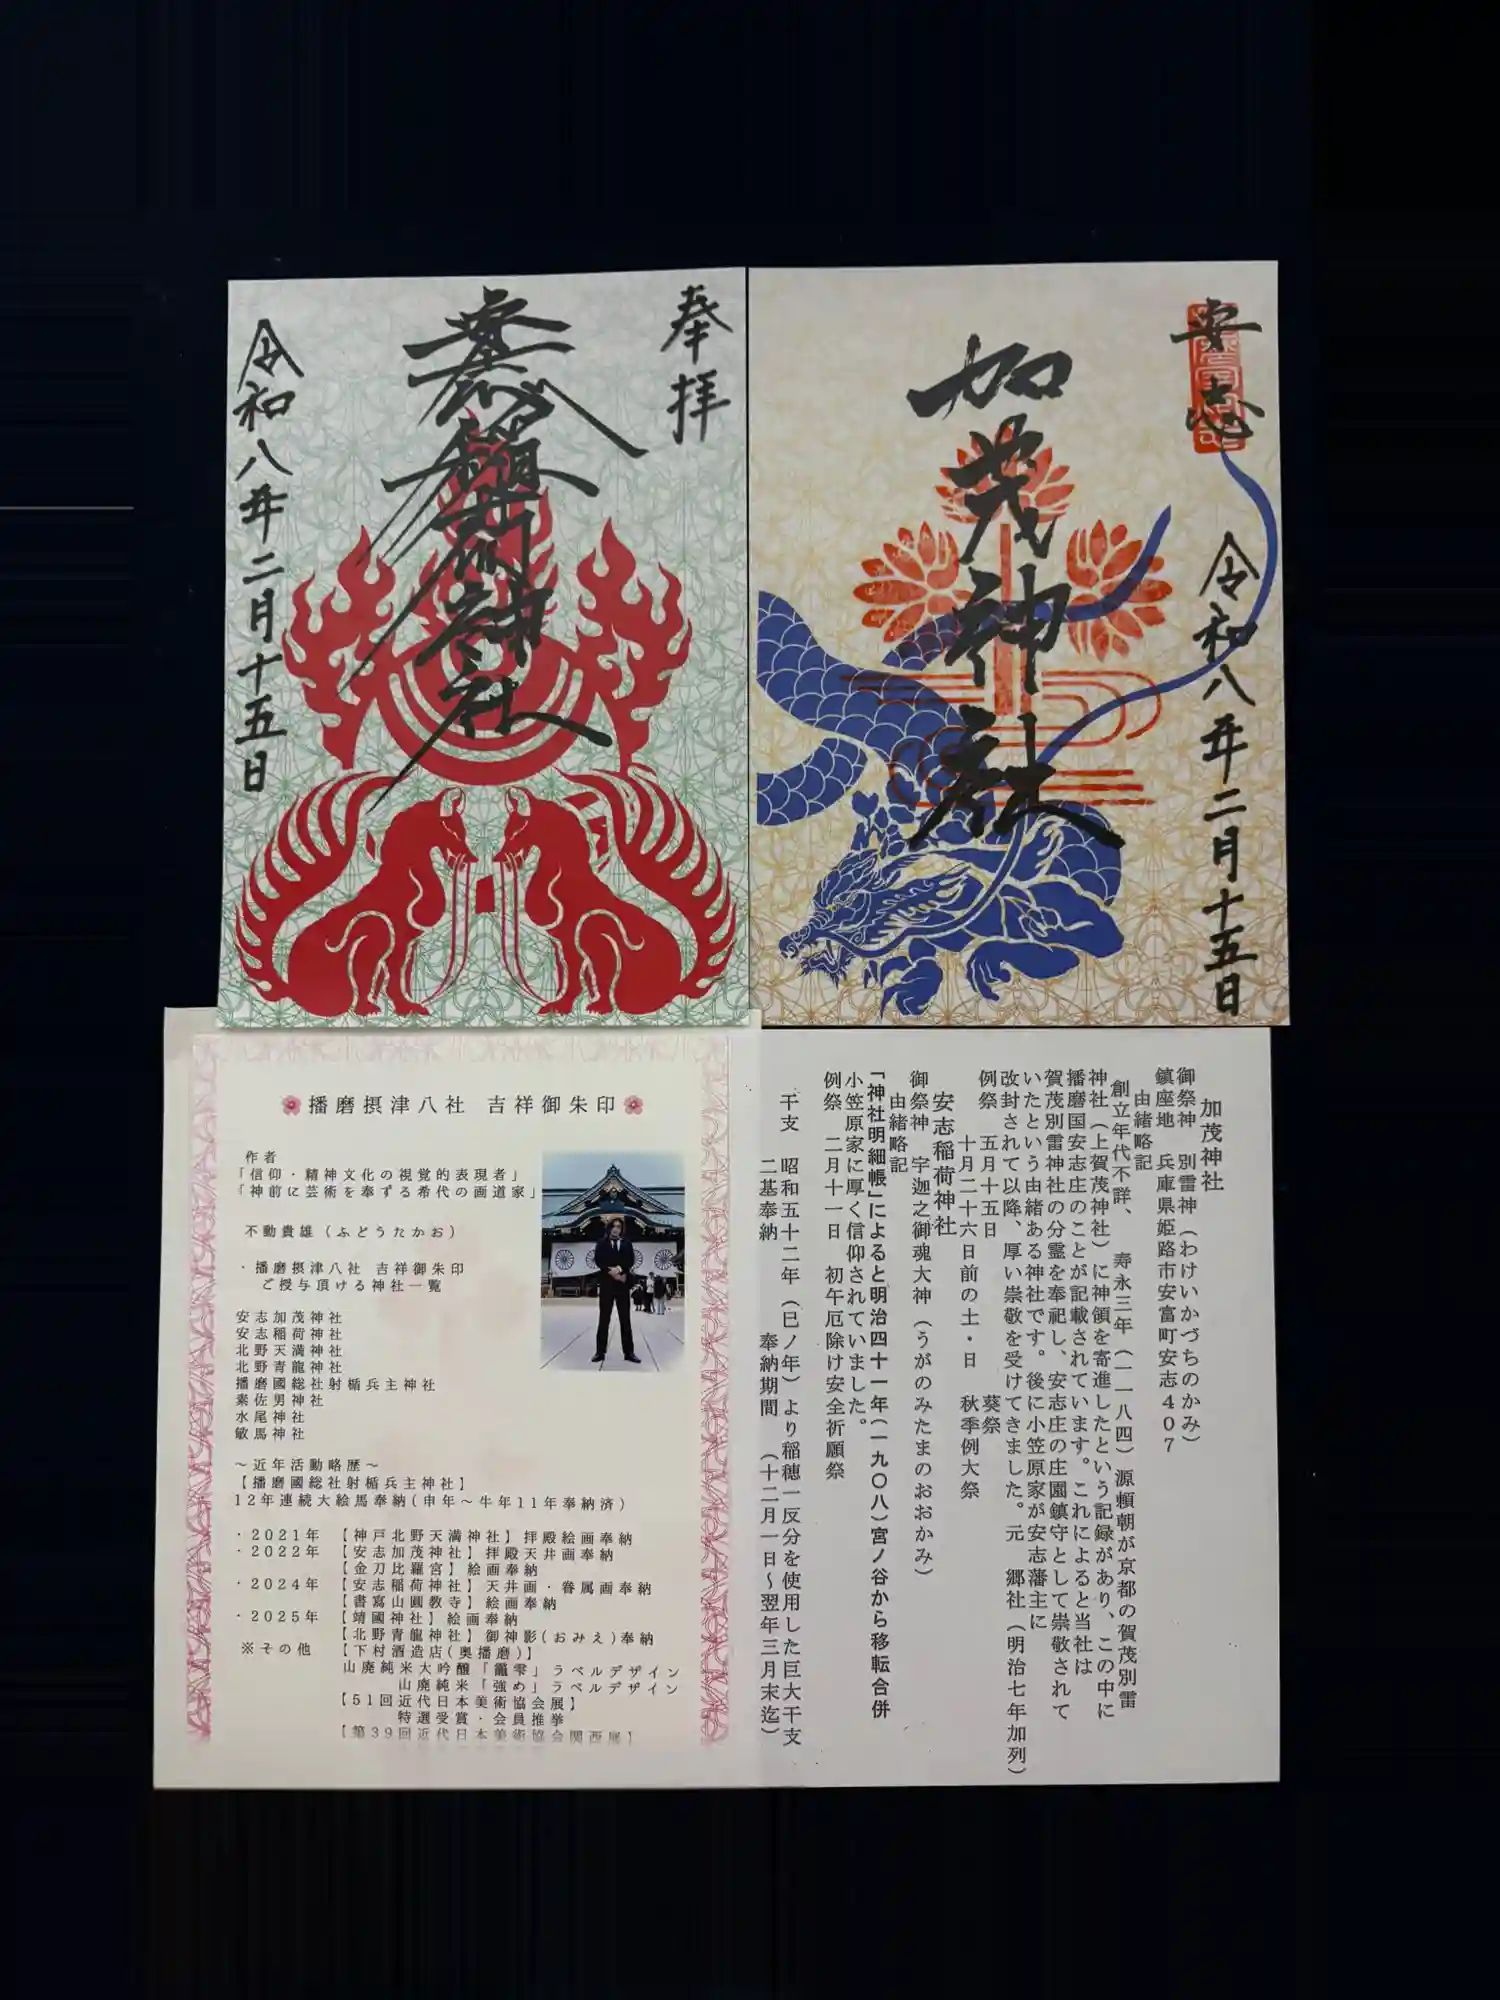 奉拝
安志稲荷神社
令和八年二月十五日
安志
加茂神社
令和八年二月十五日
播磨摂津八社 吉祥御朱印
作者
「信仰・精神文化の視覚的表現者」
「神前に芸術を奉ずる希代の画道家」
不動貴雄(ふどうたかお)
・播磨摂津八社 吉祥御朱印
ご授与頂ける神社一覧
安志加茂神社
安志稲荷神社
北野天満神社
北野青龍神社
播磨國総社射楯兵主神社
素佐男神社
水尾神社
敏馬神社
～近年活動略歴～
【播磨國総社射楯兵主神社】
12年連続大絵馬奉納(申年～牛年11年奉納済)
・2021年 【神戸北野天満神社】拝殿絵画奉納
・2022年 【安志加茂神社】拝殿天井画奉納
【金刀比羅宮】絵画奉納
・2024年 【安志稲荷神社】天井画・眷属画奉納
【書寫山圓教寺】絵画奉納
・2025年 【靖國神社】絵画奉納
【北野青龍神社】御神影(おみえ)奉納
※その他 【下村酒造店(奥播磨)】
山廃純米大吟醸「龗雫」ラベルデザイン
山廃純米「強め」ラベルデザイン
【51回近代日本美術協会展】
特選受賞・会員推挙
【第39回近代日本美術協会関西展】
加茂神社
御祭神 別雷神(わけいかづちのかみ)
鎮座地 兵庫県姫路市安富町安志407
由緒略記
創立年代不詳、 寿永三年(一一八四)源頼朝が京都の賀茂別雷
神社(上賀茂神社)に神領を寄進したという記録があり、この中に
播磨国安志庄のことが記載されています。これによると当社は
賀茂別雷神社の分霊を奉祀し、安志庄の庄園鎮守として崇敬されて
いたという由緒ある神社です。後に小笠原家が安志藩主に
改封されて以降、厚い崇敬を受けてきました。元 郷社(明治七年加列)
例祭 五月十五日 葵祭
十月二十六日前の土・日 秋季例大祭
安志稲荷神社
御祭神 宇迦之御魂大神(うがのみたまのおおかみ)
由緒略記
「神社明細帳」によると明治四十一年(一九〇八)宮ノ谷から移転合併
小笠原家に厚く信仰されていました。
例祭 二月十一日 初午厄除け安全祈願祭
干支 昭和五十二年(巳ノ年)より稲穂一反分を使用した巨大干支
二基奉納 奉納期間 (十二月一日～翌年三月末迄)